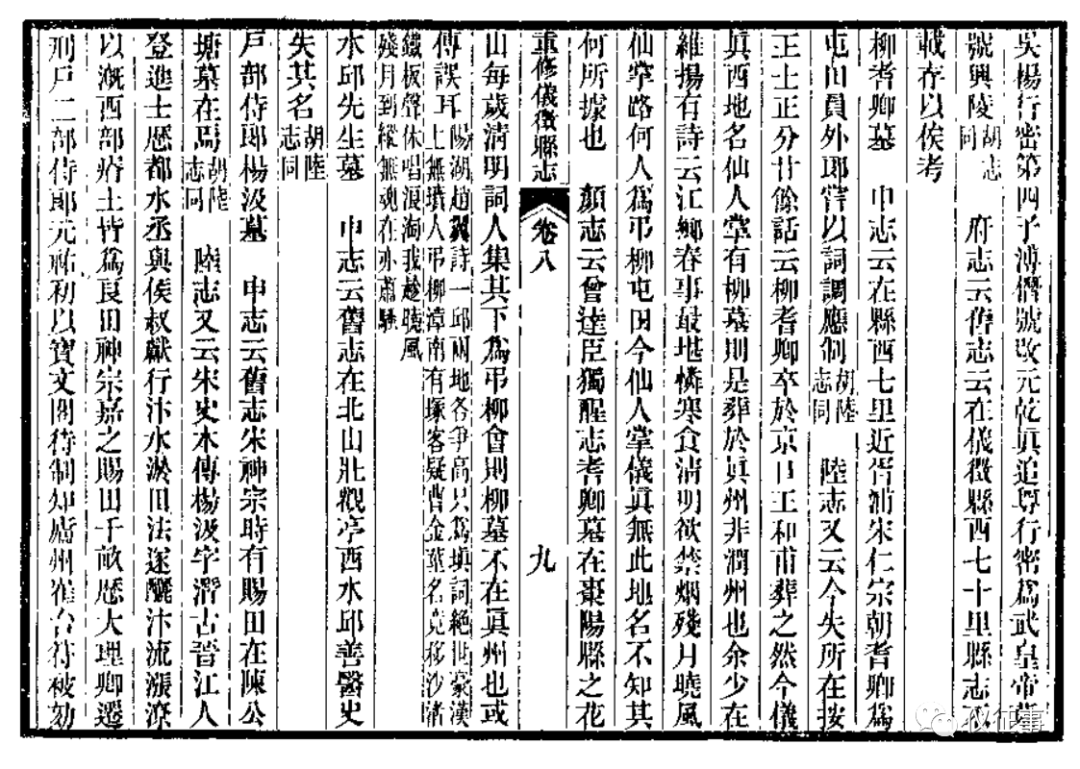 吳楊行密第四子溥僭號改元乾眞追尊行密爲武皇帝墓
號興陵胡志同 府志云舊志云在儀徵縣西七十里縣志不
載存以俟考
柳耆卿墓 申志云在縣西七里近胥浦宋仁宗朝耆卿爲
屯田員外郎嘗以詞調應制胡陸志同 陸志又云今失所在按
王士正分甘餘話云柳耆卿卒於京口王和甫葬之然今儀
眞西地名仙人掌有柳墓則是葬於眞州非潤州也余少在
維揚有詩云江鄉春事最堪憐寒食淸明欲禁烟殘月曉風
仙掌路何人爲弔柳屯田今仙人掌儀眞無此地名不知其
何所據也 顏志云曾達臣獨醒志耆卿墓在棗陽縣之花
重修儀徵縣志 卷八 九
山每歲淸明詞人集其下爲弔柳會則柳墓不在眞州也或
傳誤耳陽湖趙翼詩一邱兩地各爭高只爲塡詞絕世豪漢
上無墳人弔柳漳南有塚客疑曹金葉名竟移沙渚
鐵板聲休唱浪淘我趁曉風
殘月到縱無魂在亦蕭騷
水邱先生墓 申志云舊志在北山壯觀亭西水邱善醫史
失其名胡陸志同
戸部侍郎楊汲墓 申志云舊志宋神宗時有賜田在陳公
塘墓在焉胡陸志同 陸志又云宋史本傳楊汲字潛古晉江人
登進士歷都水丞與侯叔獻行汴水淤田法遂釃汴流漲潦
以漑西部瘠土皆爲良田神宗嘉之賜田千畝歷大理卿遷
刑戸二部侍郎元祐初以寶文閣待制知廬州崔台符被劾
仪征事